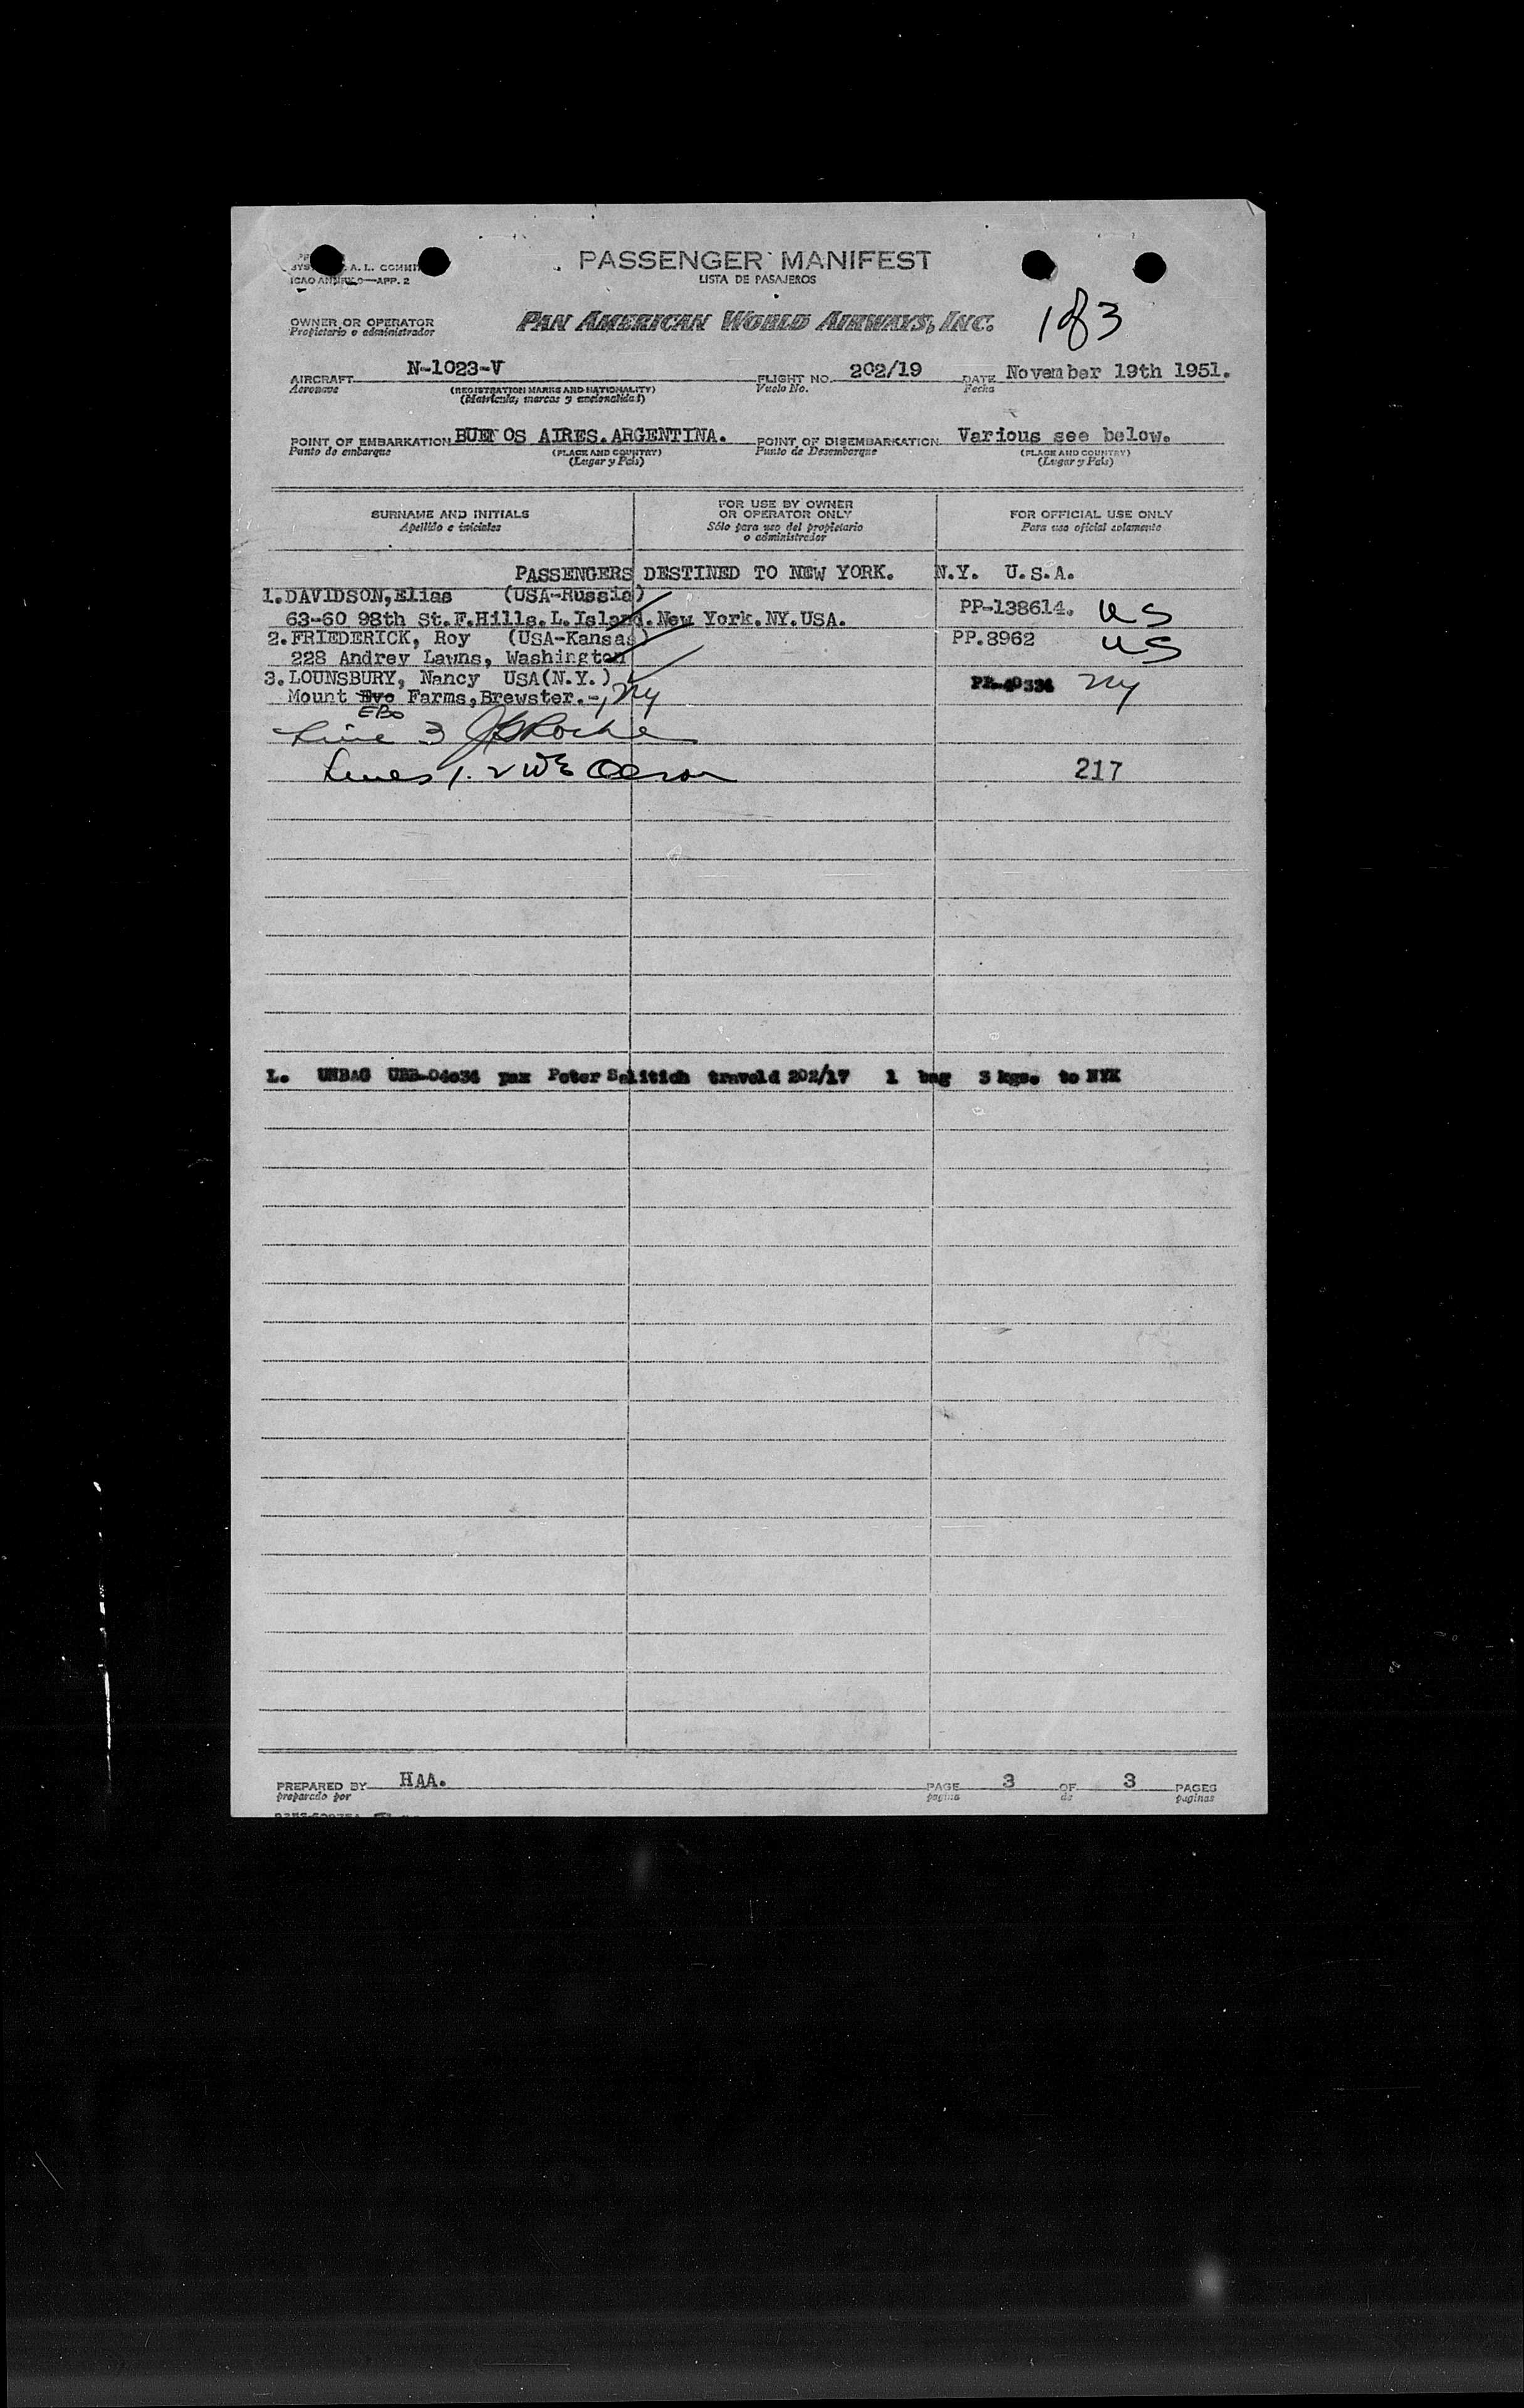 PASSENGER MANIFEST
A. L. COMMIT
LISTA DE PASAJEROS
ICAO ANNEX 9—APP. 2
OWNER OR OPERATOR PAN AMERICAN WORLD AIRWAYS, INC. 1 of 3
Propietario o administrador
AIRCRAFT N-1023-V FLIGHT NO. 202/19 DATE November 19th 1951.
Aeronave (REGISTRATION MARKS AND NATIONALITY) Vuelo No. Fecha
(Matrícula, marcas y nacionalidad)
POINT OF EMBARKATION BUENOS AIRES. ARGENTINA. POINT OF DISEMBARKATION Various see below.
Punto de embarque (PLACE AND COUNTRY) Punto de Desembarque (PLACE AND COUNTRY)
(Lugar y País) (Lugar y País)
SURNAME AND INITIALS FOR USE BY OWNER OR OPERATOR ONLY FOR OFFICIAL USE ONLY
Apellido e iniciales Sólo para uso del propietario o administrador Para uso oficial solamente
PASSENGERS DESTINED TO NEW YORK. N.Y. U.S.A.
1.DAVIDSON,Elias (USA-Russia)
63-60 98th St.F.Hills.L.Island.New York.NY.USA. PP-138614. US
2.FRIEDERICK, Roy (USA-Kansas) PP.8962 US
228 Andrey Lawns, Washington
3.LOUNSBURY, Nancy USA(N.Y.) PP-40334 NY
Mount Eve Farms,Brewster.-, NY
EBo
Line 3 Roche
Lines 1. 2 WE Olson 217
L. UNBAG UBB-04034 pax Peter Selitich traveld 202/17 1 bag 3 kgs. to NYK
PREPARED BY HAA. PAGE 3 OF 3 PAGES
preparado por pagina de paginas